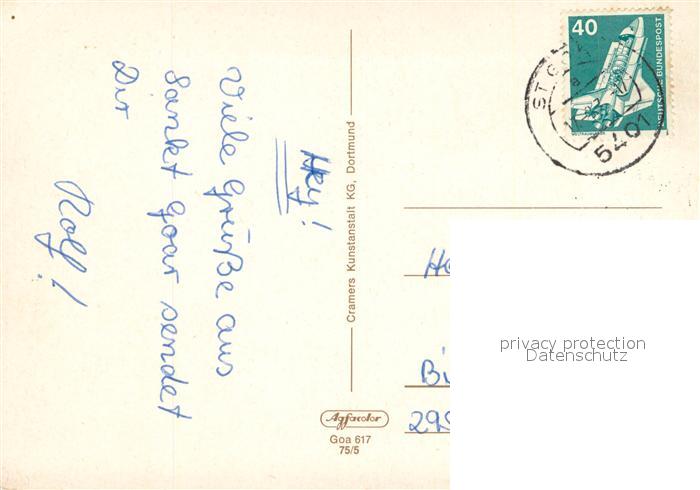 Hey!
Viele Grüße aus
Sankt Goar sendet
Dir
Rolf!
Cramers Kunstanstalt KG, Dortmund
Agfacolor
Goa 617
75/5
40
DEUTSCHE BUNDESPOST
ST.
5401
privacy protection
Datenschutz